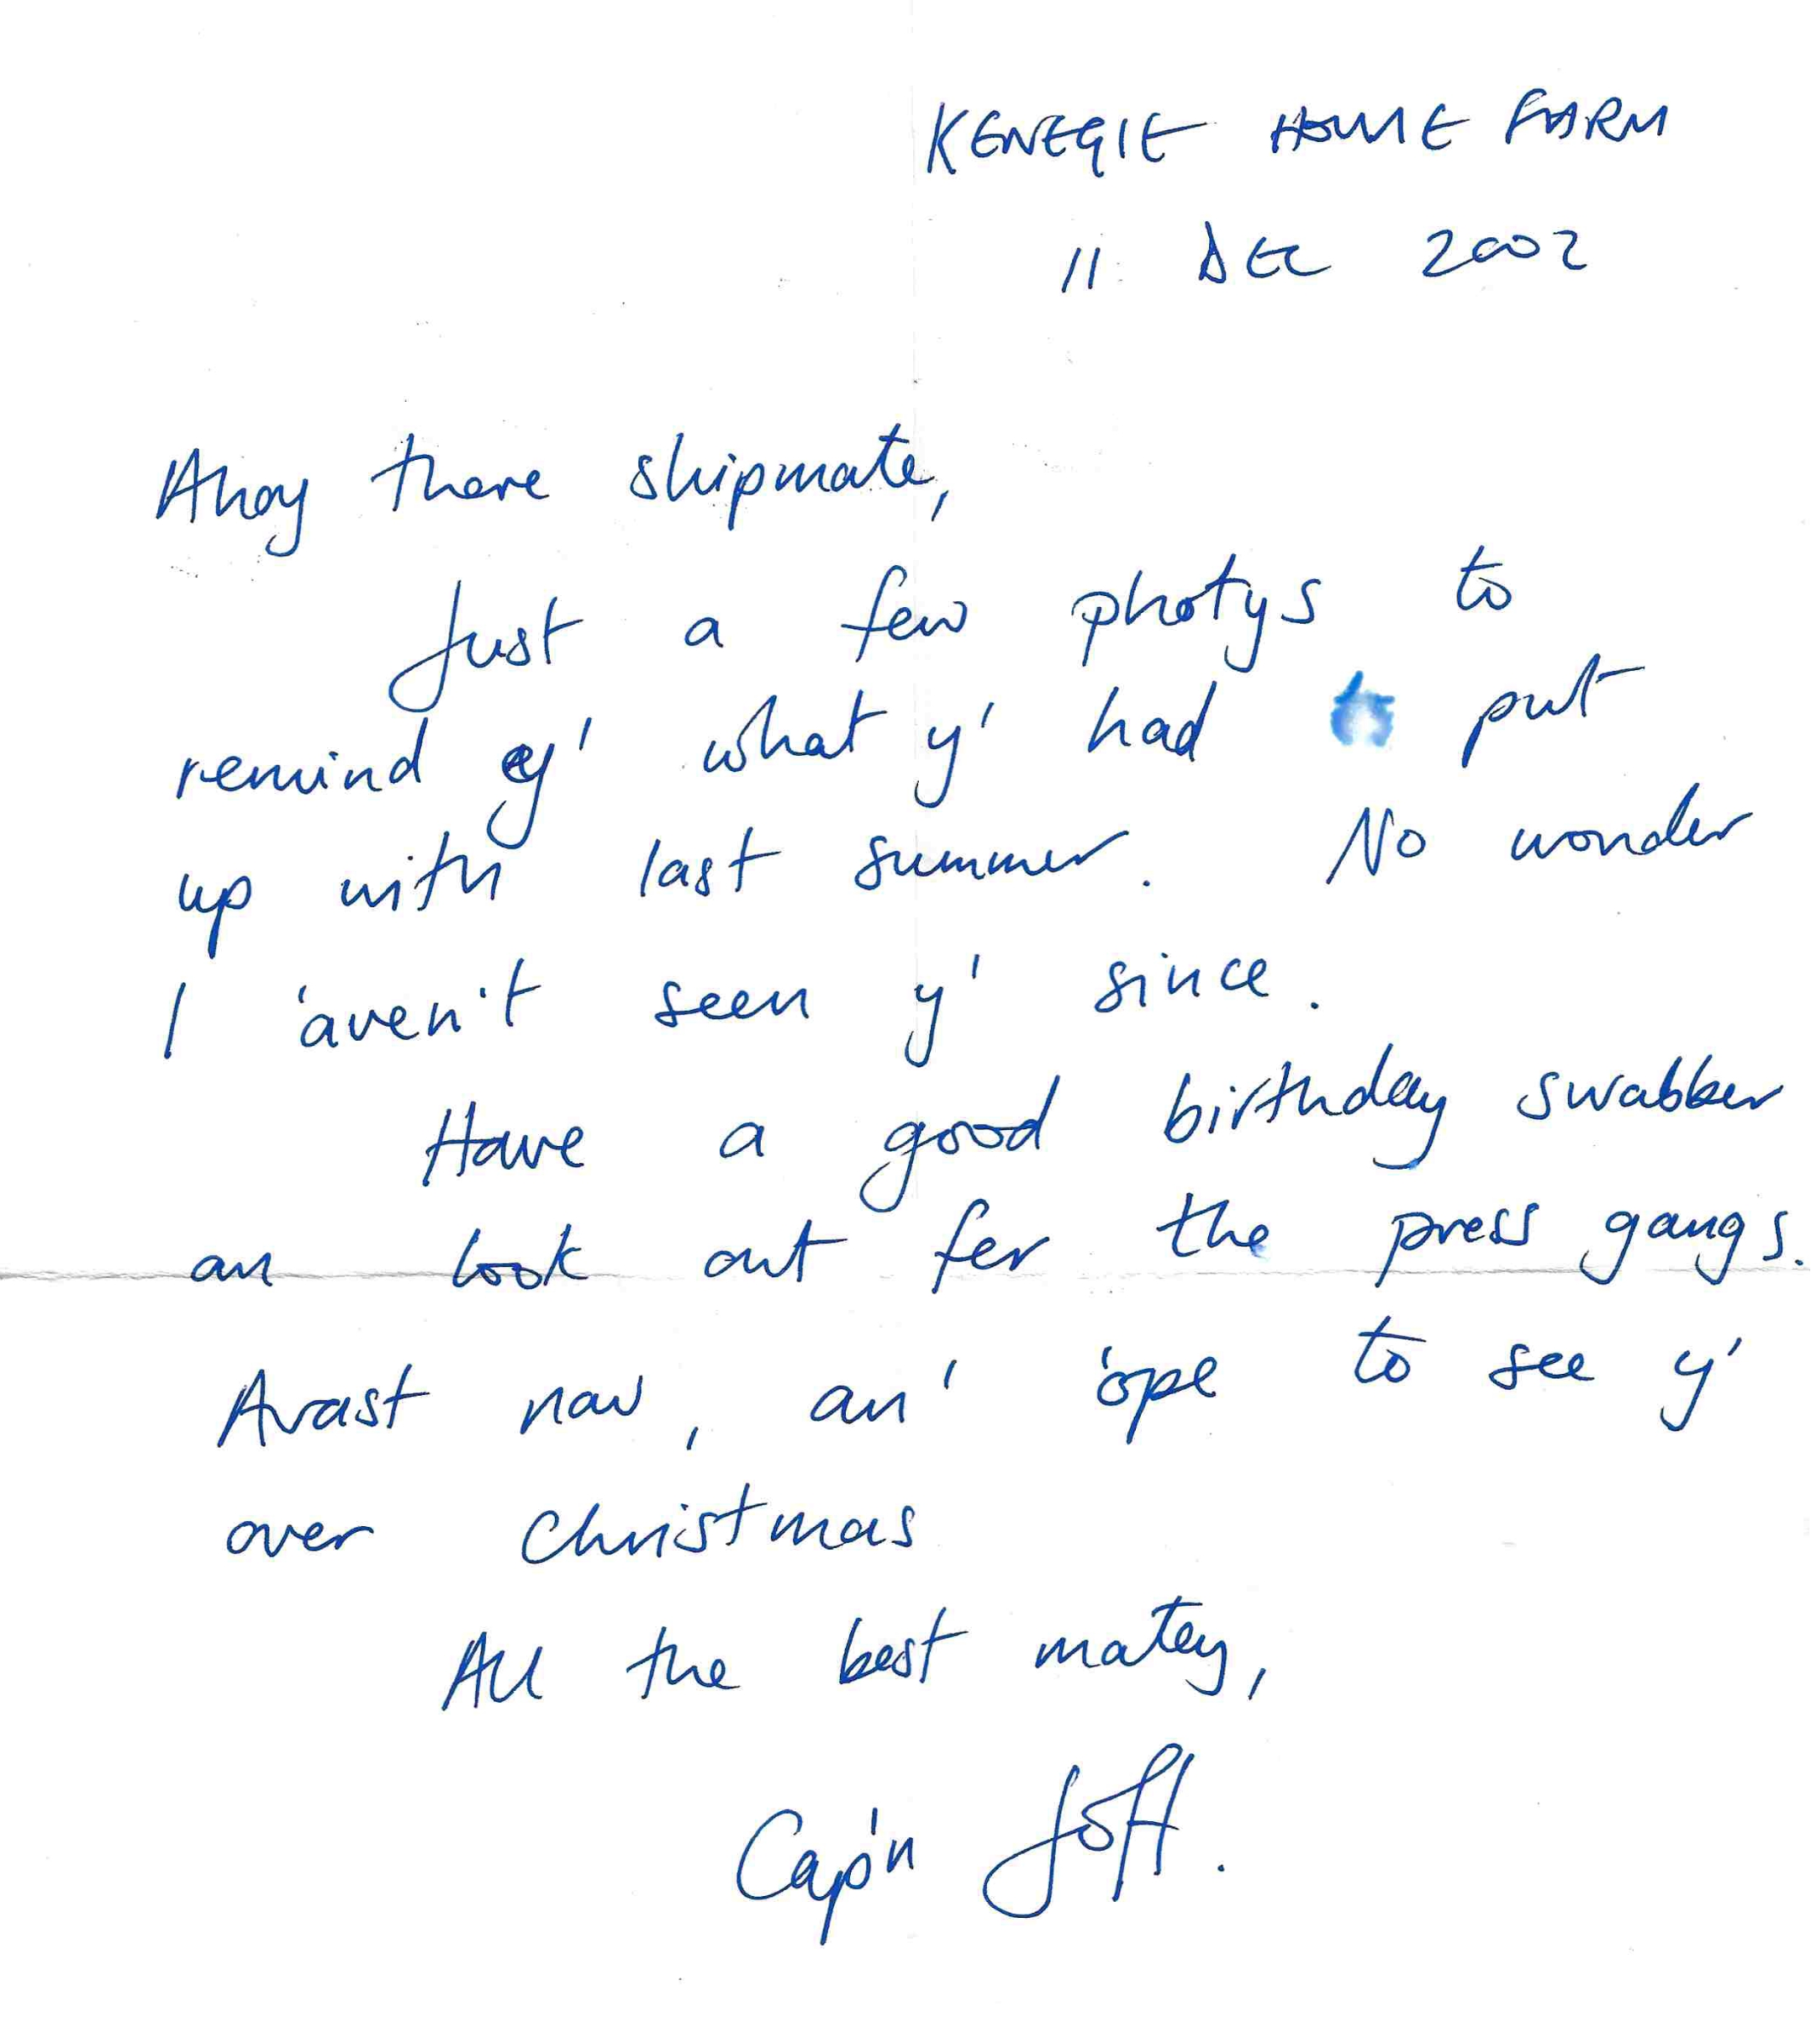 KENEGIE HOME FARM
11 DEC 2002
Ahoy there shipmate,
Just a few photys to
remind y' what y' had to put
up with last summer. No wonder
I 'aven't seen y' since.
Have a good birthday swabber
an look out fer the press gangs.
Avast now, an' 'ope to see y'
over Christmas
All the best matey,
Cap'n Joff.